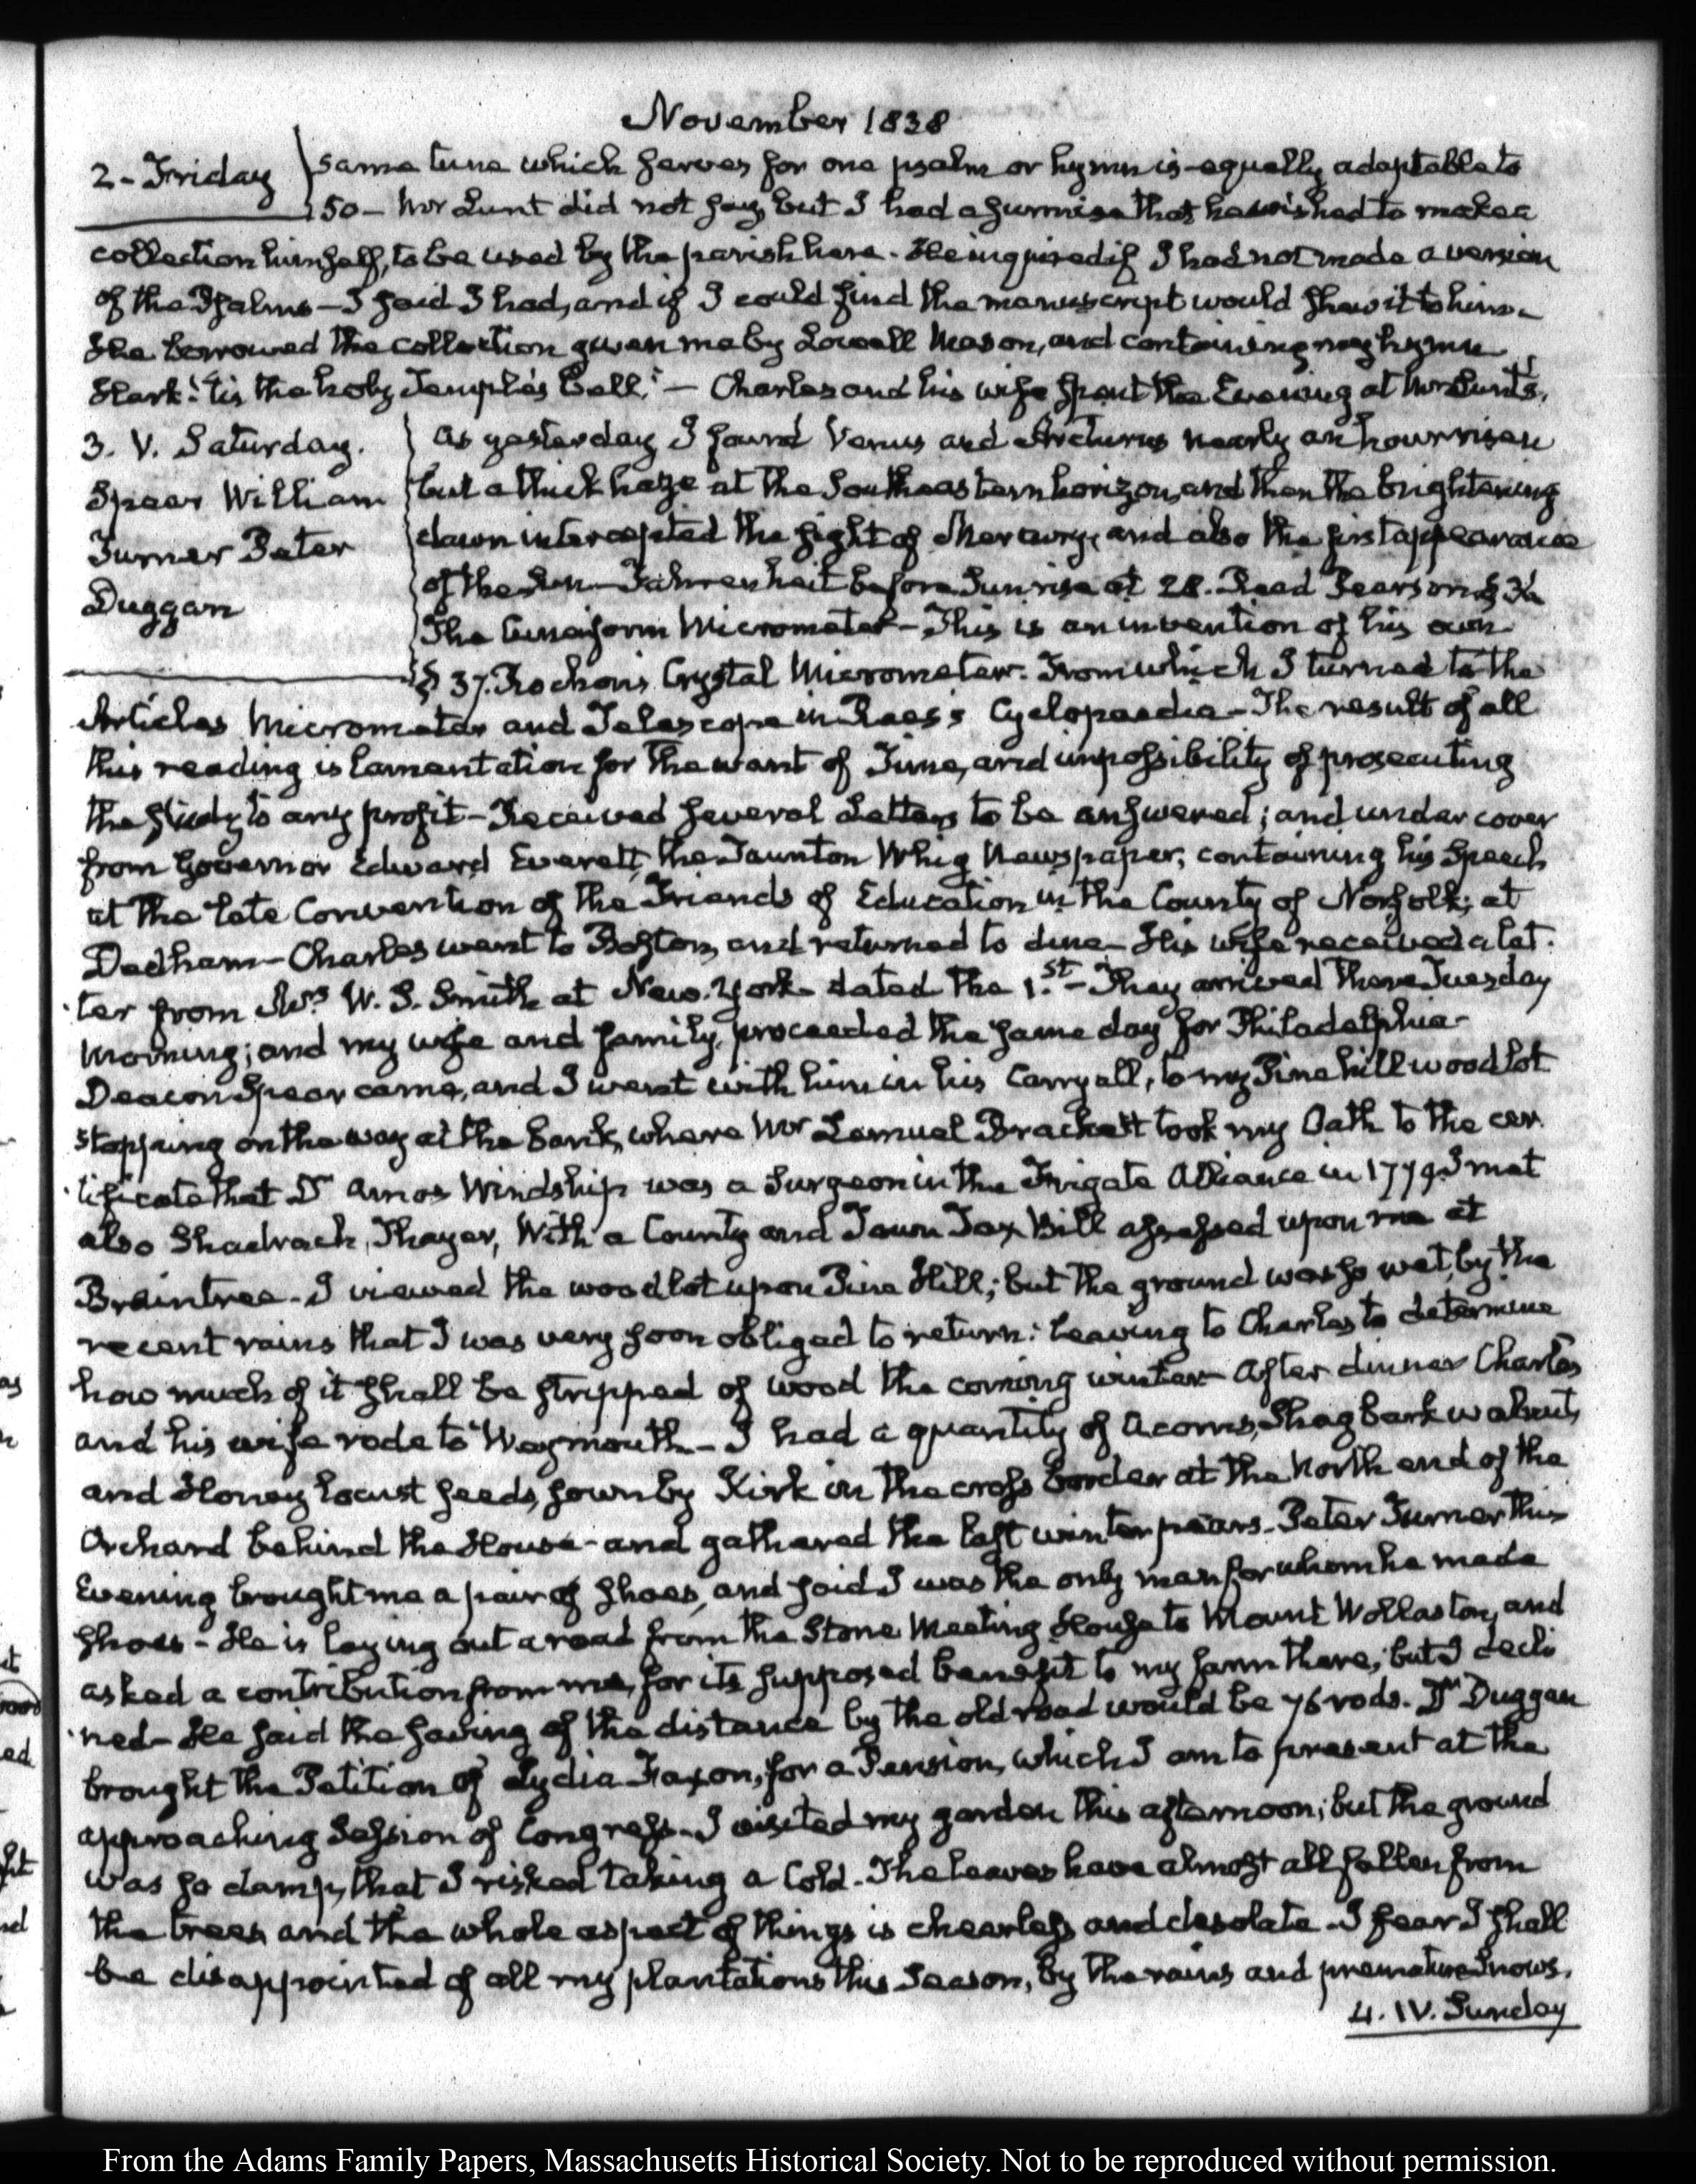 November 1838
2 - Friday
same tune which serves for one psalm or hymn is equally adaptable to
150 - Mr Lunt did not say, but I had a surmise that he wished to make a
collection himself, to be used by the parish here. He inquired if I had not made a version
of the Psalms - I said I had, and if I could find the manuscript would shew it to him.
He borrowed the collection given me by Lowell Mason, and containing my hymn
Hark! 'tis the holy Temple's bell. - Charles and his wife spent the Evening at Mr Lunt's.
3. V. Saturday.
Spear William
Turner Peter
Duggan
As yesterday I found Venus and Arcturus nearly an hour risen
but a thick haze at the Southeastern horizon, and then the brightening
dawn intercepted the sight of Mercury, and also the first appearance
of the Sun - Fahrenheit before Sunrise at 28. Read Pearson § 36
The Cuneiform Micrometer - This is an invention of his own
§ 37. Rochon's Crystal Micrometer. From which I turned to the
Articles Micrometer and Telescope in Rees's Cyclopaedia - The result of all
this reading is lamentation for the want of Time, and impossibility of prosecuting
the study to any profit - Received several Letters to be answered; and under cover
from Governor Edward Everett, the Taunton Whig Newspaper, containing his Speech
at the late Convention of the Friends of Education in the County of Norfolk; at
Dedham - Charles went to Boston, and returned to dine - His wife received a let-
ter from Mrs W. S. Smith at New-York dated the 1.st - They arrived there Tuesday
Morning; and my wife and family, proceeded the same day for Philadelphia -
Deacon Spear came, and I went with him in his Carryall, to my Pine hill wood lot
stopping on the way at the bank, where Mr Lemuel Brackett took my Oath to the cer-
tificate that Dr Amos Windship was a Surgeon in the Frigate Alliance in 1779. I met
also Shadrach Thayer, With a County and Town Tax Bill assessed upon me at
Braintree. I viewed the wood lot upon Pine Hill; but the ground was so wet, by the
recent rains that I was very soon obliged to return: leaving to Charles to determine
how much of it shall be stripped of wood the coming winter - After dinner Charles
and his wife rode to Weymouth - I had a quantity of Acorns, Shagbark walnuts,
and Honey locust seeds, sown by Kirk in the cross border at the North end of the
Orchard behind the House - and gathered the last winter pears. Peter Turner this
Evening brought me a pair of shoes, and said I was the only man for whom he made
shoes - He is laying out a road from the Stone Meeting House to Mount Wollaston, and
asked a contribution from me, for its supposed benefit to my farm there; but I decli-
ned - He said the saving of the distance by the old road would be 76 rods. Dr Duggan
brought the Petition of Lydia Faxon, for a Pension, which I am to present at the
approaching Session of Congress. I visited my garden this afternoon; but the ground
was so damp, that I risked taking a Cold. The leaves have almost all fallen from
the trees and the whole aspect of things is cheerless and desolate. I fear I shall
be disappointed of all my plantations this Season, by the rains and premature snows.
4. IV. Sunday
From the Adams Family Papers, Massachusetts Historical Society. Not to be reproduced without permission.